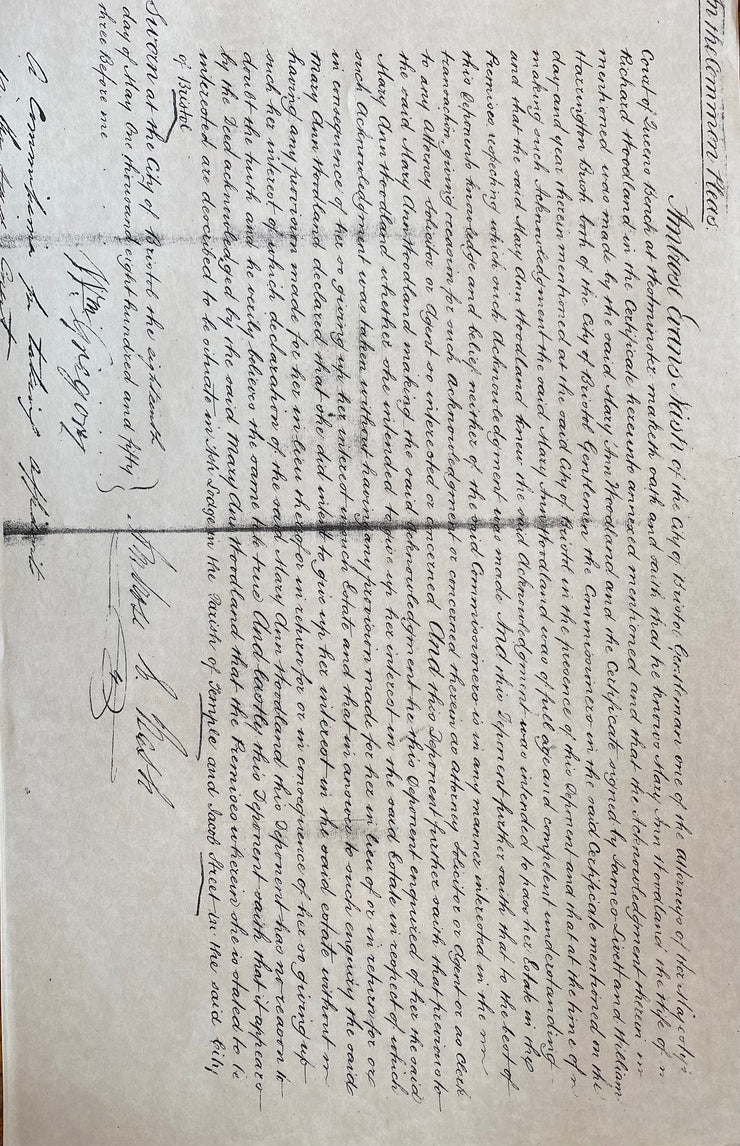 In the Common Pleas.
Ambrose Evans Nash of the City of Bristol Gentleman one of the Attorneys of Her Majestys
Court of Queens Bench at Westminster maketh oath and saith that he knows Mary Ann Woodland the Wife of
Richard Woodland in the Certificate hereunto annexed mentioned and that the Acknowledgment therein
mentioned was made by the said Mary Ann Woodland and the Certificate signed by James Livett and William
Harrington Bush both of the City of Bristol Gentlemen the Commissioners in the said Certificate mentioned on the
day and year therein mentioned at the said City of Bristol in the presence of this Deponent and that at the time of
making such Acknowledgment the said Mary Ann Woodland was of full age and competent understanding
and that the said Mary Ann Woodland knew the said Acknowledgment was intended to pass her Estate in the
Premises respecting which such Acknowledgment was made And this Deponent further saith that to the best of
this Deponents knowledge and belief neither of the said Commissioners is in any manner interested in the
transaction giving reason for such Acknowledgment or concerned therein as Attorney Solicitor or Agent or as Clerk
to any Attorney Solicitor or Agent so interested or concerned And this Deponent further saith that previous to
the said Mary Ann Woodland making the said Acknowledgment he this Deponent enquired of her the said
Mary Ann Woodland whether she intended to give up her interest in the said Estate in respect of which
such Acknowledgment was taken without having any provision made for her in lieu of or in return for or
in consequence of her so giving up her interest in such Estate and that in answer to such enquiry the said
Mary Ann Woodland declared that she did intend to give up her interest in the said estate without
having any provision made for her in lieu thereof or in return for or in consequence of her so giving up
such her interest of which declaration of the said Mary Ann Woodland this Deponent has no reason to
doubt the truth and he verily believes the same to be true And lastly this Deponent saith that it appears
by the Deed acknowledged by the said Mary Ann Woodland that the Premises wherein she is stated to be
interested are described to be situate in the Parish of Temple and Jacob Street in the said City
of Bristol
Sworn at the City of Bristol the eighteenth
day of May One thousand eight hundred and fifty
three Before me
Ambrose E. Nash
Wm Gregory
A Commissioner for taking affidavits
in the said Court